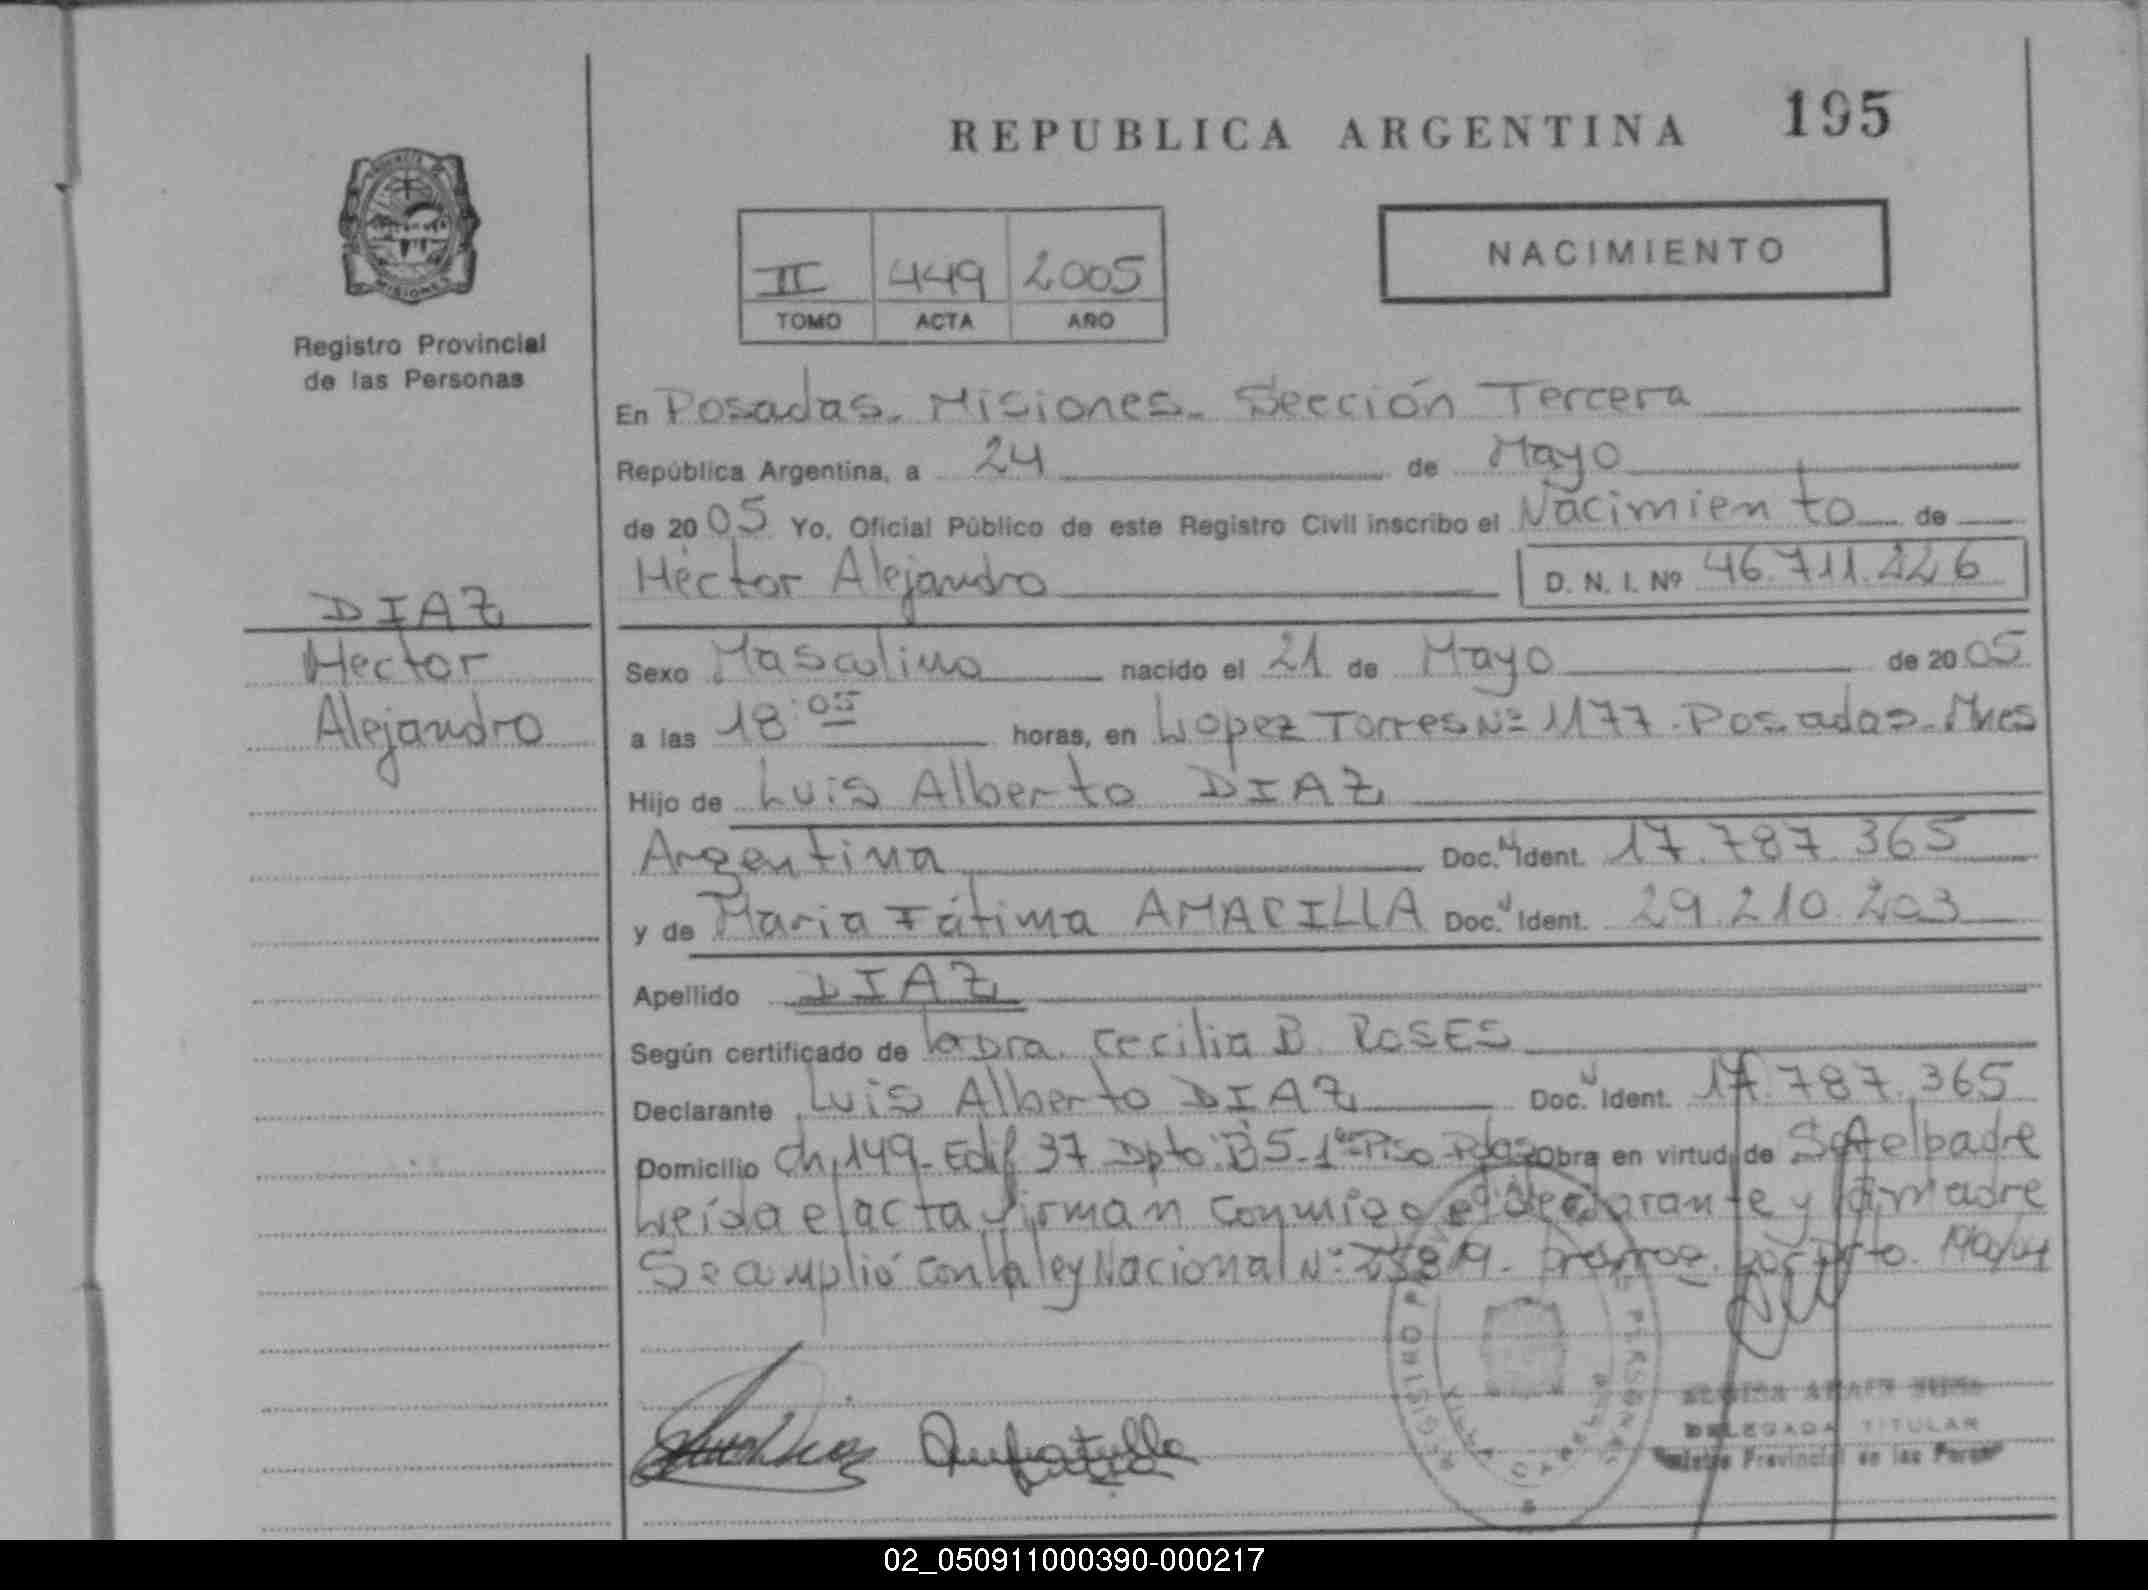 REPUBLICA ARGENTINA 195
PROVINCIA DE MISIONES
Registro Provincial
de las Personas
NACIMIENTO
II 449 2005
TOMO ACTA AÑO
En Posadas. Misiones. Sección Tercera
República Argentina, a 24 de Mayo
de 2005 Yo, Oficial Público de este Registro Civil inscribo el Nacimiento de
Héctor Alejandro D. N. I. Nº 46.711.226
DIAZ
Hector
Alejandro
Sexo Masculino nacido el 21 de Mayo de 2005
a las 18:05 horas, en Lopez Torres Nº 1177. Posadas. Mnes
Hijo de Luis Alberto DIAZ
Argentina Doc. N Ident. 17.787.365
y de Maria Fátima AMARILLA Doc. N Ident. 29.210.203
Apellido DIAZ
Según certificado de la Dra. Cecilia B. ROSES
Declarante Luis Alberto DIAZ Doc. N Ident. 17.787.365
Domicilio Ch. 149. Edif 37 Dpto. B5. 1er Piso. Pdas Obra en virtud de Ser el padre
Leída el acta firman conmigo el declarante y la madre
Se amplió con la ley Nacional Nº por Dto.
DELEGADA TITULAR
Registro Provincial de las Personas
02_050911000390-000217